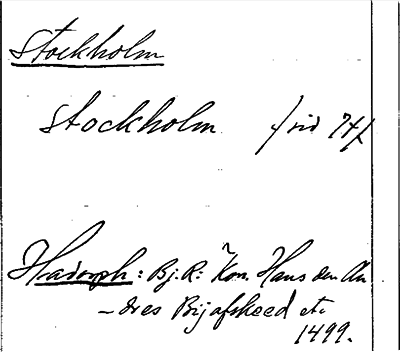 Stockholm
Stockholm /sid 74/
Hadorph: Bj. R: Kon. Hans den An
-dres Bijafskeed etc
1499.